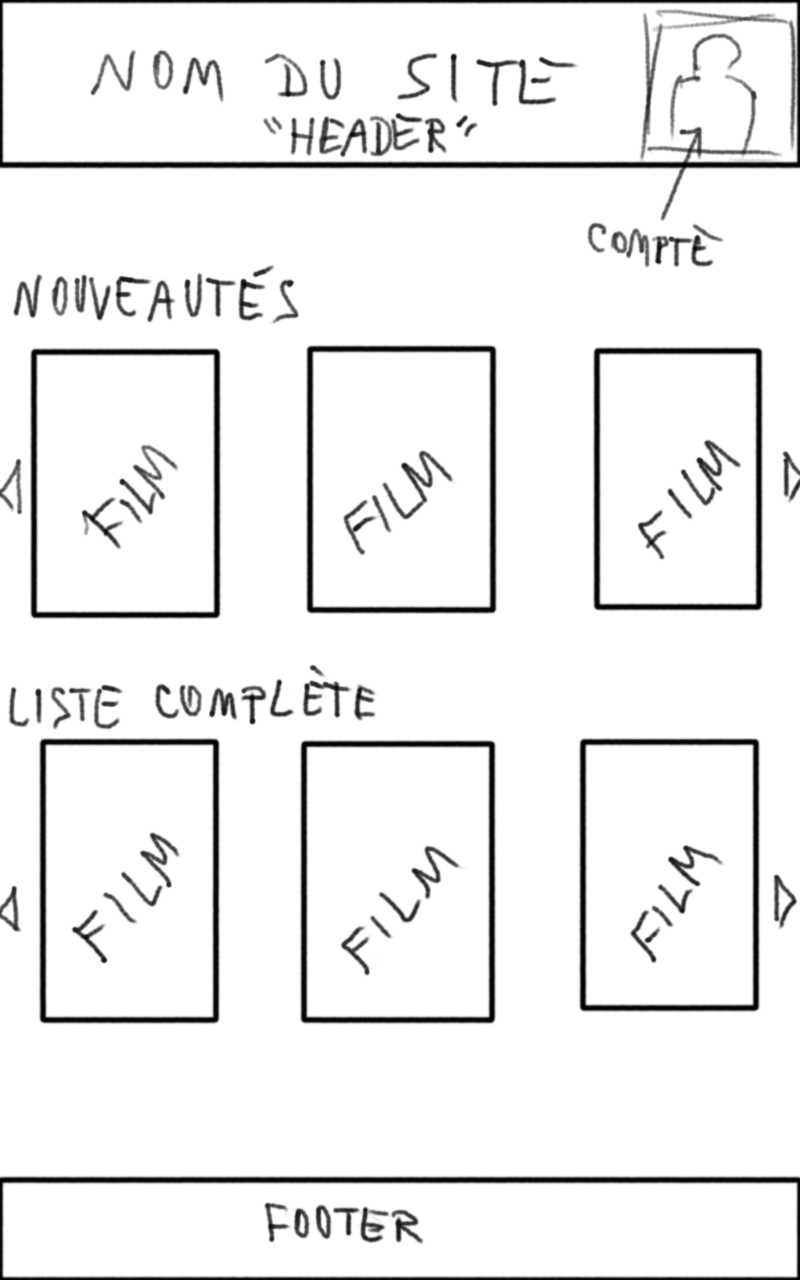 NOM DU SITE
"HEADER"
COMPTE
NOUVEAUTÉS
FILM FILM FILM
LISTE COMPLÈTE
FILM FILM FILM
FOOTER